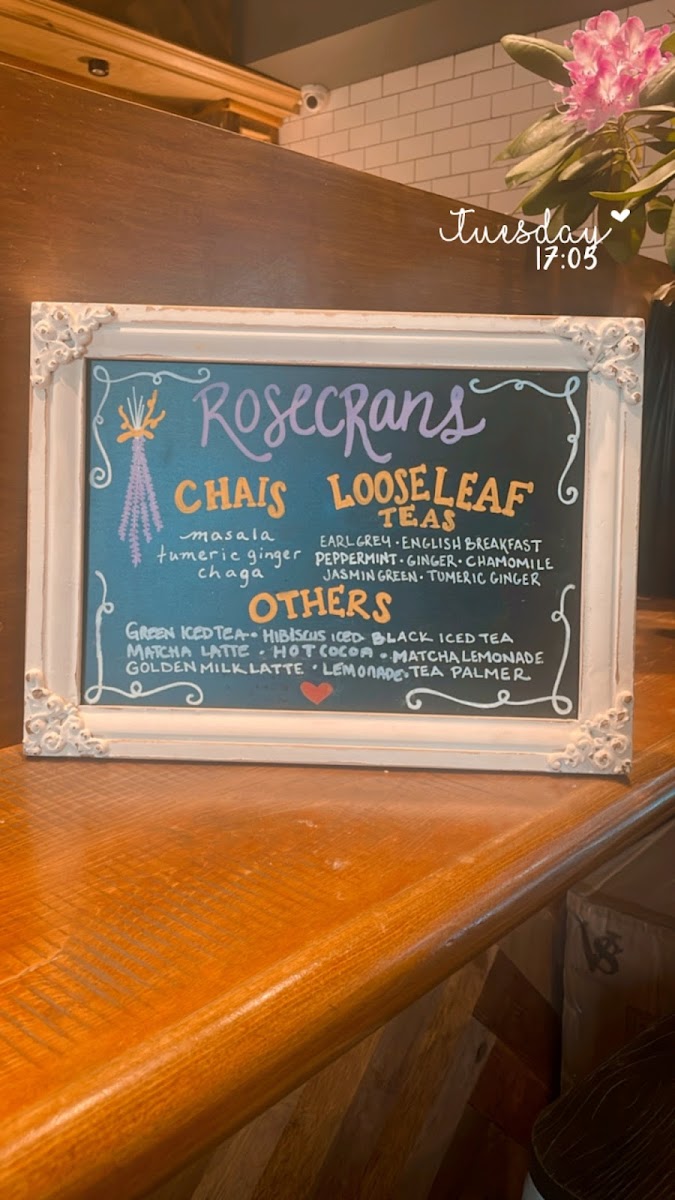 tuesday
17:05
Rosecrans
CHAIS
masala
tumeric ginger
chaga
LOOSELEAF
TEAS
EARL GREY · ENGLISH BREAKFAST
PEPPERMINT · GINGER · CHAMOMILE
JASMIN GREEN · TUMERIC GINGER
OTHERS
GREEN ICED TEA · HIBISCUS ICED BLACK ICED TEA
MATCHA LATTE · HOT COCOA · MATCHA LEMONADE
GOLDEN MILK LATTE · LEMONADE · TEA PALMER